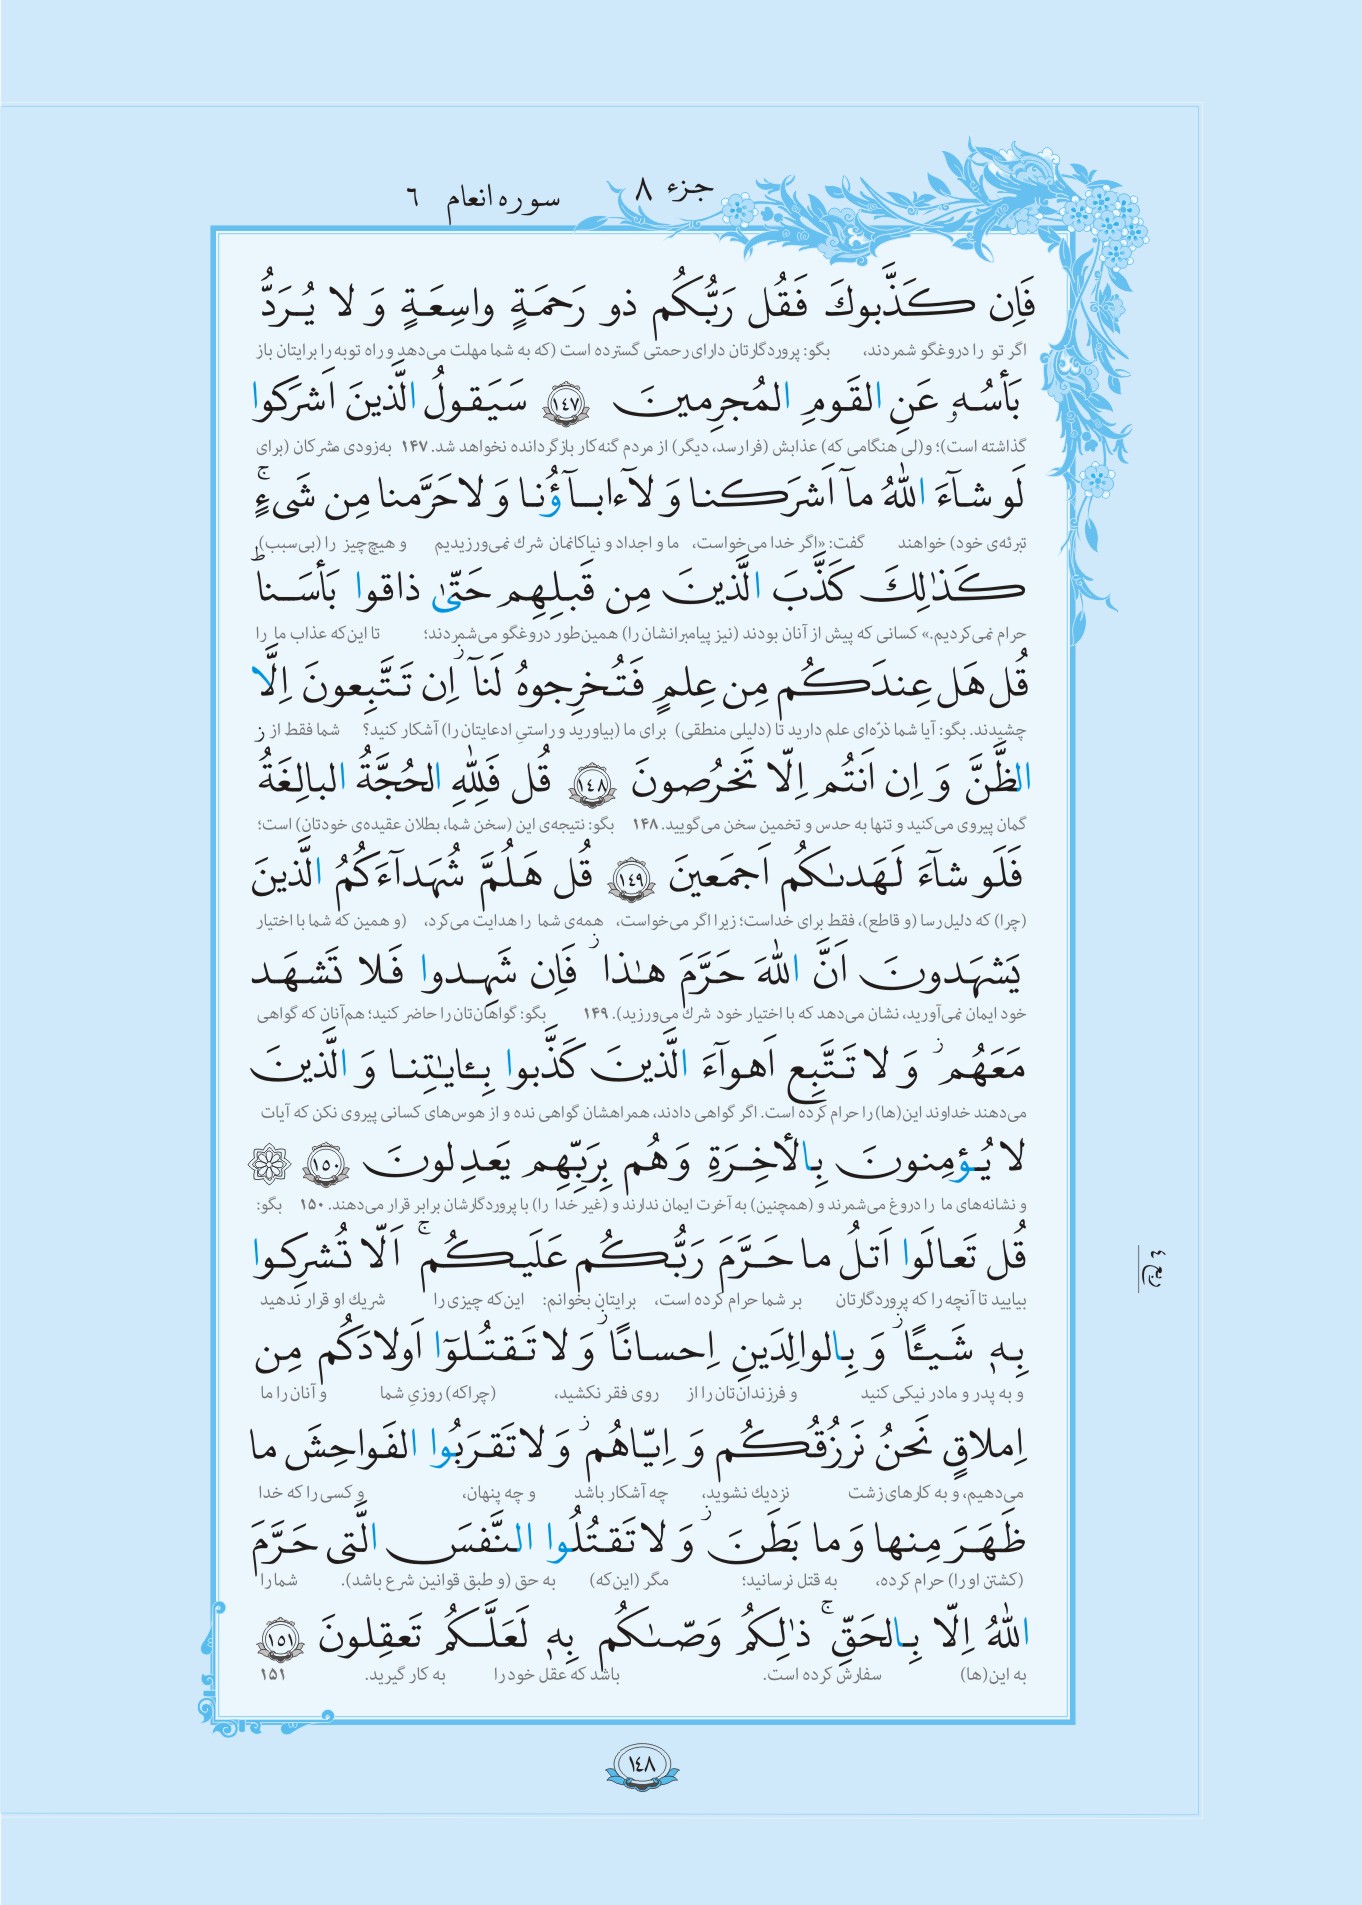 جزء ٨
سوره انعام ٦
فَاِن كَذَّبوكَ فَقُل رَبُّكُم ذو رَحمَةٍ واسِعَةٍ وَ لا يُرَدُّ
اگر تو را دروغگو شمردند، بگو: پروردگارتان دارای رحمتی گسترده است (که به شما مهلت می‌دهد و راه توبه را برایتان باز
بَأسُهٗ عَنِ القَومِ المُجرِمينَ ١٤٧ سَيَقولُ الَّذينَ اَشرَكوا
گذاشته است)؛ و(لی هنگامی که) عذابش (فرا رسد، دیگر) از مردم گنه‌کار بازگردانده نخواهد شد. ۱۴۷ به‌زودی مشرکان (برای
لَو شآءَ اللّٰهُ مآ اَشرَكنا وَ لآ ءابآؤُنا وَ لا حَرَّمنا مِن شَیءٍ ۚ
تبرئه‌ی خود) خواهند گفت: «اگر خدا می‌خواست، ما و اجداد و نیاکانمان شرك نمی‌ورزیدیم و هیچ‌چیز را (بی‌سبب)
كَذٰلِكَ كَذَّبَ الَّذينَ مِن قَبلِهِم حَتّىٰ ذاقوا بَأسَنا ؕ
حرام نمی‌کردیم.» کسانی که پیش از آنان بودند (نیز پیامبرانشان را) همین‌طور دروغگو می‌شمردند؛ تا این‌که عذاب ما را
قُل هَل عِندَكُم مِن عِلمٍ فَتُخرِجوهُ لَنآ ز اِن تَتَّبِعونَ اِلَّا
چشیدند. بگو: آیا شما ذرّه‌ای علم دارید تا (دلیلی منطقی) برای ما (بیاورید و راستیِ ادعایتان را) آشکار کنید؟ شما فقط از
الظَّنَّ وَ اِن اَنتُم اِلّا تَخرُصونَ ١٤٨ قُل فَلِلّٰهِ الحُجَّةُ البالِغَةُ ز
گمان پیروی می‌کنید و تنها به حدس و تخمین سخن می‌گویید. ۱۴۸ بگو: نتیجه‌ی این (سخن شما، بطلان عقیده‌ی خودتان) است؛
فَلَو شآءَ لَهَدىٰكُم اَجمَعينَ ١٤٩ قُل هَلُمَّ شُهَدآءَكُمُ الَّذينَ
(چرا) که دلیل رسا (و قاطع)، فقط برای خداست؛ زیرا اگر می‌خواست، همه‌ی شما را هدایت می‌کرد، (و همین که شما با اختیار
يَشهَدونَ اَنَّ اللّٰهَ حَرَّمَ هٰذا ز فَاِن شَهِدوا فَلا تَشهَد
خود ایمان نمی‌آورید، نشان می‌دهد که با اختیار خود شرك می‌ورزید). ۱۴۹ بگو: گواهان‌تان را حاضر کنید؛ هم‌آنان که گواهی
مَعَهُم ز وَ لا تَتَّبِع اَهوآءَ الَّذينَ كَذَّبوا بِـٔايٰتِنا وَ الَّذينَ
می‌دهند خداوند این(ها) را حرام کرده است. اگر گواهی دادند، همراهشان گواهی نده و از هوس‌های کسانی پیروی نکن که آیات
لا يُؤمِنونَ بِالأخِرَةِ وَ هُم بِرَبِّهِم يَعدِلونَ ١٥٠
و نشانه‌های ما را دروغ می‌شمرند و (همچنین) به آخرت ایمان ندارند و (غیر خدا را) با پروردگارشان برابر قرار می‌دهند. ۱۵۰ بگو:
قُل تَعالَوا اَتلُ ما حَرَّمَ رَبُّكُم عَلَيكُم ۚ اَلّا تُشرِكوا
بیایید تا آنچه را که پروردگارتان بر شما حرام کرده است، برایتان بخوانم: این‌که چیزی را شریك او قرار ندهید
ربع ٤
بِهٖ شَيـًٔا ز وَ بِالوالِدَينِ اِحسانًا ز وَ لا تَقتُلوٓا اَولادَكُم مِن
و به پدر و مادر نیکی کنید و فرزندان‌تان را از روی فقر نکشید، (چراکه) روزیِ شما و آنان را ما
اِملاقٍ نَحنُ نَرزُقُكُم وَ اِيّاهُم ز وَ لا تَقرَبُوا الفَواحِشَ ما
می‌دهیم، و به کارهای زشت نزدیك نشوید، چه آشکار باشد و چه پنهان، و کسی را که خدا
ظَهَرَ مِنها وَ ما بَطَنَ ز وَ لا تَقتُلُوا النَّفسَ الَّتی حَرَّمَ
(کشتن او را) حرام کرده، به قتل نرسانید؛ مگر (این‌که) به حق (و طبق قوانین شرع باشد). شما را
اللّٰهُ اِلّا بِالحَقِّ ۚ ذٰلِكُم وَصّىٰكُم بِهٖ لَعَلَّكُم تَعقِلونَ ١٥١
به این(ها) سفارش کرده است. باشد که عقل خود را به کار گیرید. ۱۵۱
١٤٨